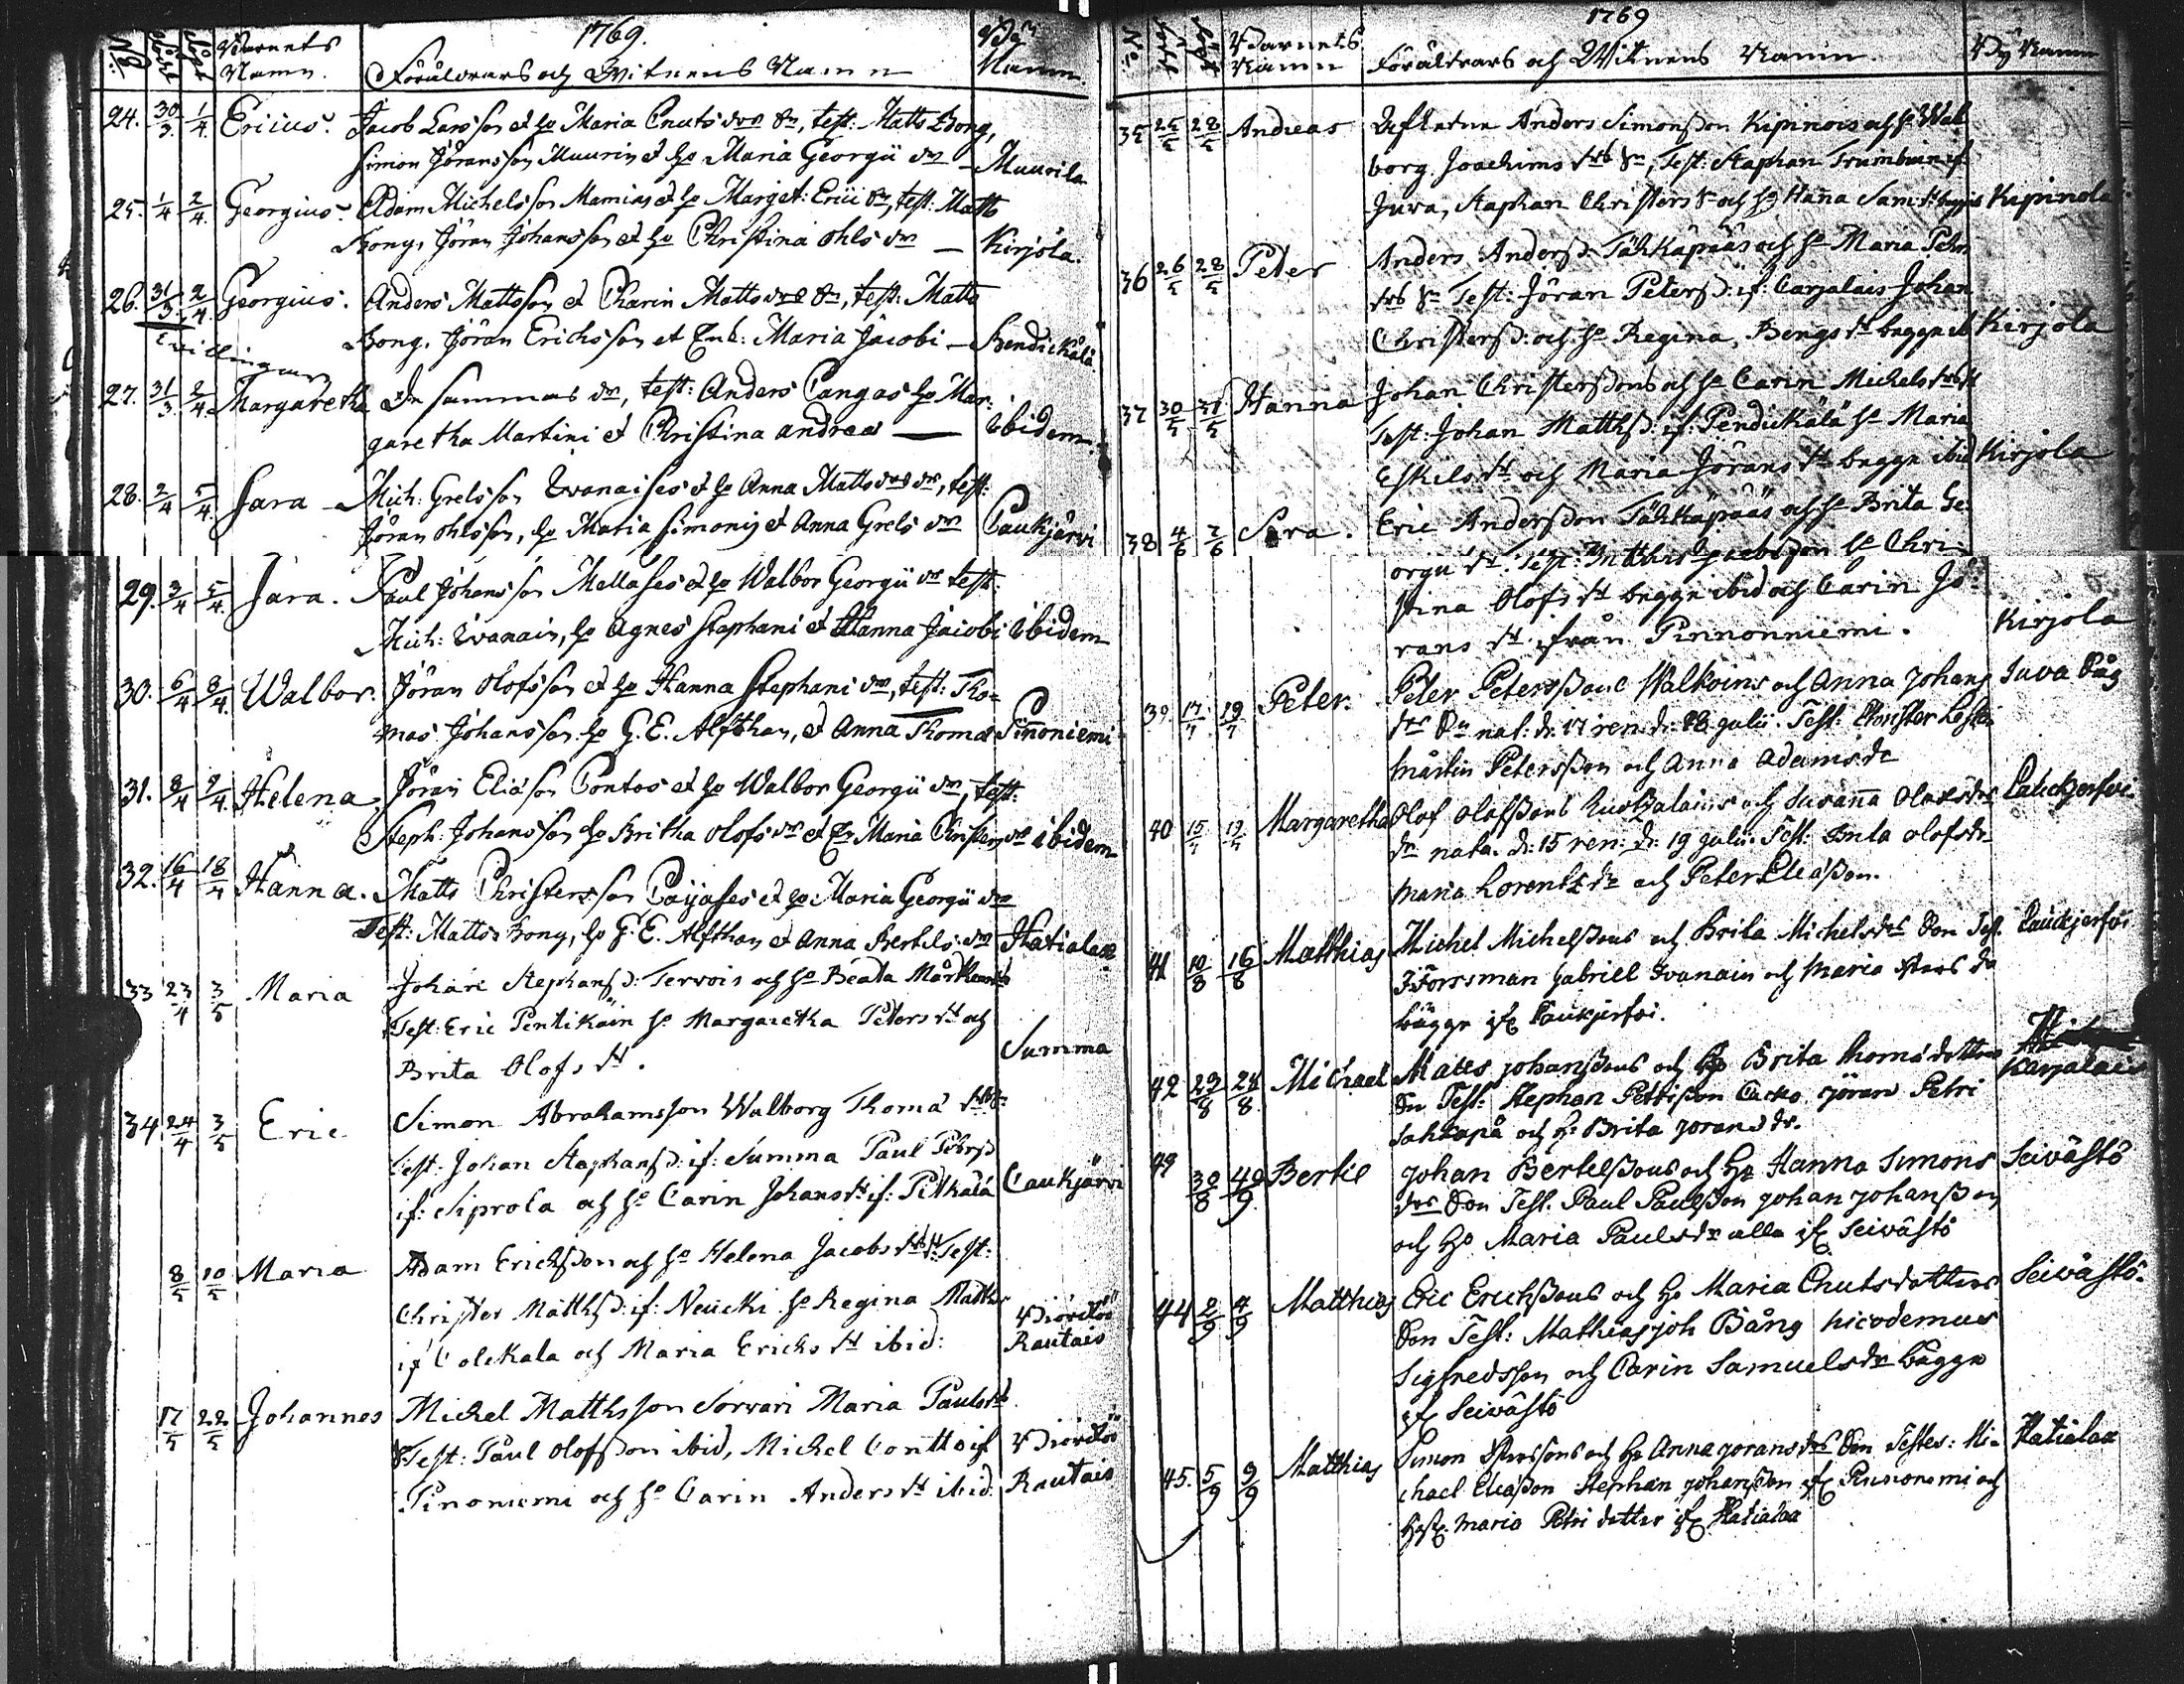 1769.
No: född Döpt Barnets Namn. Föräldrars och Witnens Namn Bÿ Namn
24. 30/3. 1/4. Ericus. Jacob Larsson et ho Maria Cnuts dr, test: Matts Bong,
Simon Jöransson Muurin et ho Maria Georgii dr – Muurila
25. 1/4 2/4. Georgius. Adam Michelsson Mamias et ho Marget: Erici dr, test: Matts
Bong, Jöran Johansson et ho Christina Ohls dr – Kirjola.
26. 31/3. 2/4. Georgius. Anders Mattsson et Charin Matts dr, test: Matts
Tvillingar
Bong, Jöran Erichsson et Enk: Maria Jacobi – Bendickälä.
27. 31/3. 2/4. Margaretha De sammas dr, test: Anders Cangas ho Mar:
garetha Martini et Christina Andreæ – ibidem.
28. 2/4 5/4. Sara – Mich: Grelsson Ivanaises et ho Anna Matts dr, test:
Jöran Ohlsson, ho Maria Simonis et Anna Grels dr Caukjärvi
29. 3/4 5/4. Sara. Paul Johansson Mellases et ho Walbor Georgii dr test:
Mich: Ivanain, ho Agnes Stephani et Hanna Jacobi ibidem
30. 6/4 8/4. Walbor. Jöran Olofsson et ho Hanna Stephani dr, test: Tho=
mas Johansson ho G. E. Alfthan, et Anna Thomæ Pinnoniemi
31. 8/4 9/4. Helena. Jöran Eliasson Pontos et ho Walbor Georgii dr, test:
Steph: Johansson ho Britha Olofs dr et Maria Christers dr ibidem
32. 16/4 18/4 Hanna. Matts Christersson Caijases et ho Maria Georgii dr
Test: Matts Bong, ho G. E. Alfthan et Anna Bertils dr Hatialax
33 23/4 3/5 Maria Johan Stephans: Tervois och ho Beata
Test: Eric Pentikäin ho Margaretha Peters dr och
Brita Olofs dr. Summa
34 24/4 3/5 Eric Simon Abrahamsson Walborg Thomæ
Test: Johan Staphans: if: Summa Paul
if: Siprola och ho Carin Johans dr if: Pitkälä Caukjärvi
8/5 10/5 Maria Adam Erichsson och ho Helena Jacobs dr Test:
Christer Matths: if: Neucki ho Regina Matths
if Colckala och Maria Erichs dr ibid: Biörckö Rautais
17/5 22/5 Johannes Michel Matthsson Sorvari Maria Pauls dr
Test: Paul Olofsson ibid, Michel Contto if Biörckö
Pinoniemi och ho Carin Anders dr ibid: Rautais
1769
No: född döpt Barnets Namn Föräldrars och Witnens Namn. Bÿ Namn
35 25/5 28/5 Andreas Anders Simonsson Kipinois och ho Wal
borg Joachims dr, Test: Staphan Trumbuin if
Juva, Staphan Christers och ho Hanna Sam: Kipinola
36 26/5 28/5 Peter Anders Anders: Tähkäpääs och ho Maria Pehrs
Test: Jöran Peters: if: Carjalais Johan
Christers: och ho Regina, Bengs dr begge ib Kirjola
37 30/5 31/5 Hanna Johan Christerssons och ho Carin Michels dr
Test: Johan Matths: if: Pendickälä ho Maria
Eskels dr och Maria Jörans dr begge ibid Kirjola
38 4/6 7/6 Sara. Eric Andersson Tähkäpääs och ho Brita Ge:
orgii dr: Test: Matthis Jacobsson ho Chri=
stina Olofs dr begge ibid och Carin Jö:
rans dr från Pinnonniemi. Kirjola
39. 17/7 19/7 Peter. Peter Peterssons Walkoins och Anna Johans Juva
dr nat: d: 17 ren: d: 18 julii. Test:
Mårtin Petersson och Anna Adams dr
40 15/7 19/7 Margaretha Olof Olofssons och Susanna Olofs dr Cauckjerfvi
dr nata. d: 15 ren: d: 19 julii. Test: Olofs dr
Maria Lorents dr och Peter Eliasson.
41 10/8 16/8 Matthias Michel Michelssons och Brita Michels dr Son Test. Caukjerfvi
J Forssman Gabriell Ivanain och Maria
bägge if Caukjerfvi.
42 23/8 24/8 Michael Matts Johanssons och Ho Brita Thomæ dotters Karjalais
Son Test: Stephan Pettisson Cacko Jöran Petri
Sahkapä och Ho Brita Jorans dr.
49 30/8 40/9 Bertil Johan Bertelssons och Ho Hanna Simons Seivästö
drs Son Test. Paul Paulsson Johan Johansson
och Ho Maria Pauls dr alla if Seivästö
44 2/9 4/9 Matthias Eric Erichssons och Ho Maria Cnuts dotters Seivästö.
Son Test: Mathias Joh Bång Nicodemus
Sigfredsson och Carin Samuels dr bägge
if Seivästö
45. 5/9 9/9 Matthias Simon och Ho Anna Jorans drs Son Testes: Mi= Hatialax
chael Eliasson Stephan Johansson if Pinnoniemi och
Maria Petri dotter if Hatialax